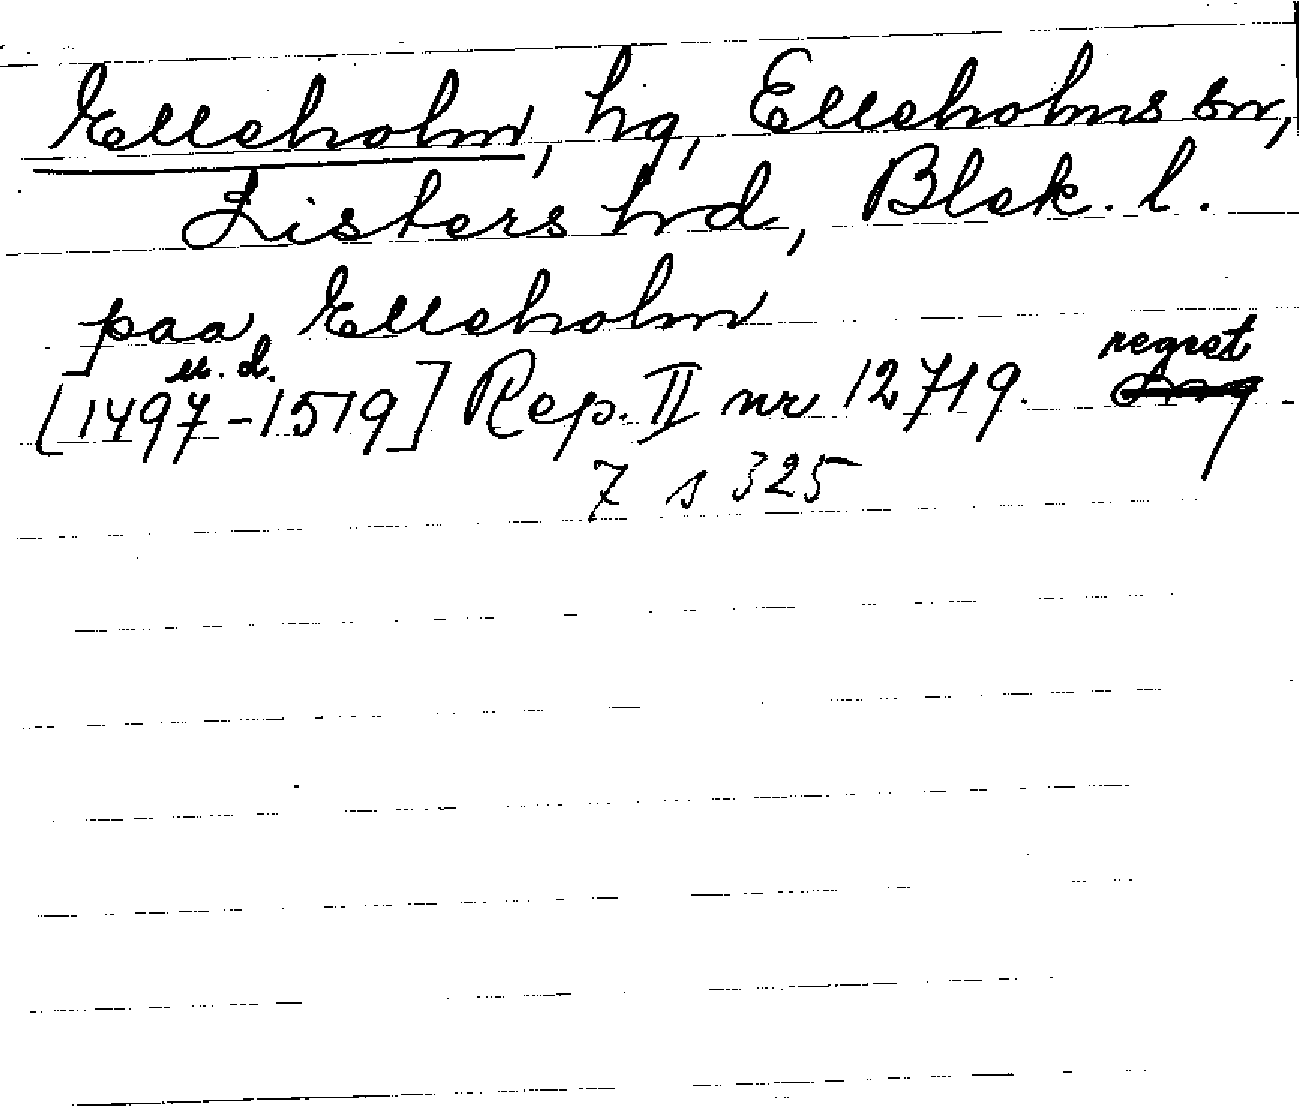 Elleholm, hg, Elleholms sn,
Listers hrd, Blek. l.
paa Elleholm
u. d. regest
[1497-1519] Rep. II nr 12719.
7 s 325